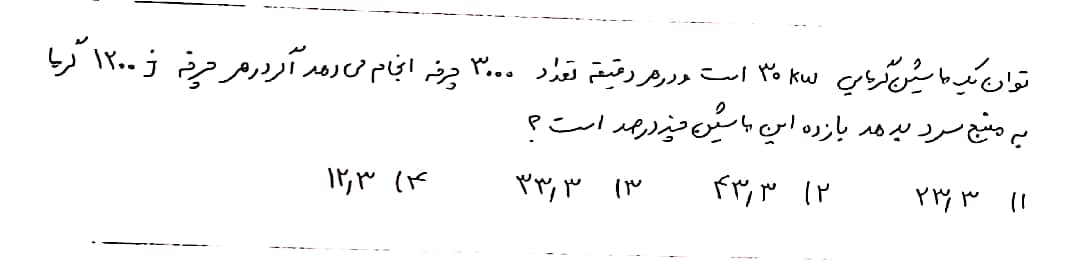 توان یک ماشین گرمایی ۳۰ kw است و در هر دقیقه تعداد ۳۰۰۰ چرخه انجام می دهد اگر در هر چرخه ۱۲۰۰ j گرما
به منبع سرد بدهد بازده این ماشین چند درصد است ؟
۱) ۲۳٫۳ ۲) ۴۳٫۳ ۳) ۳۳٫۳ ۴) ۱۲٫۳